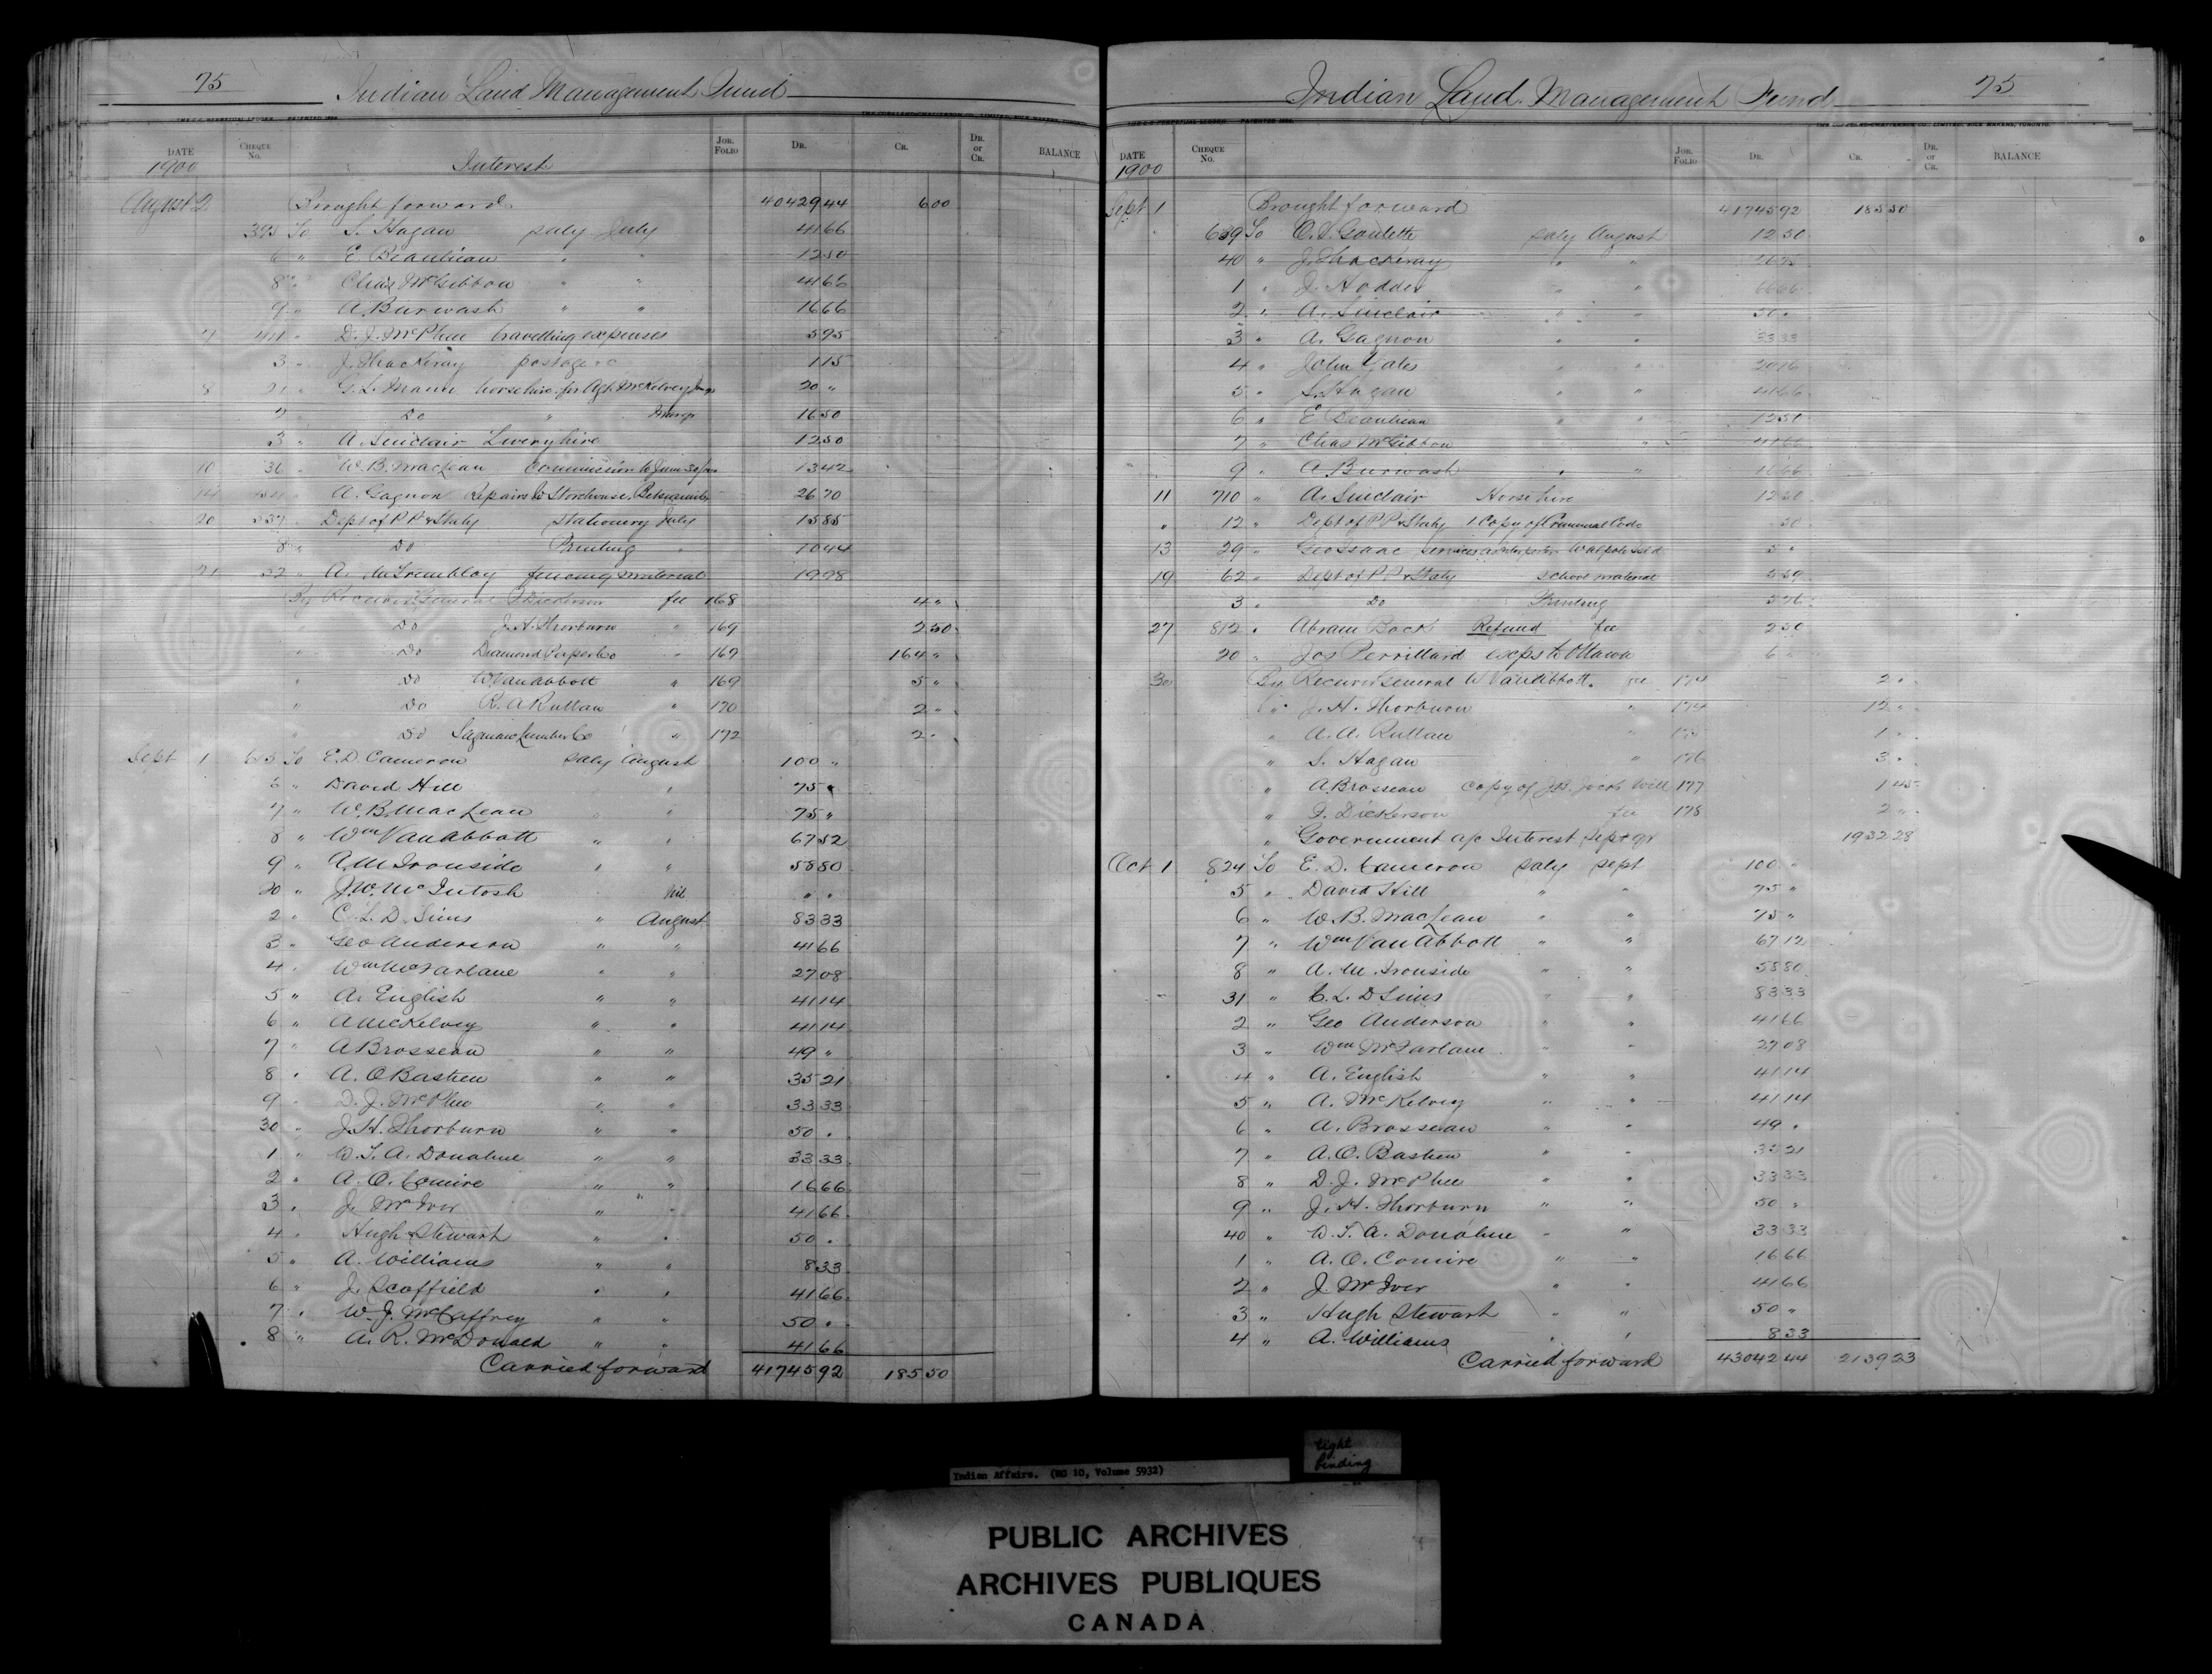 75 Indian Land Management Fund
DATE CHEQUE No. Interest JOR. FOLIO DR. CR. DR. or CR. BALANCE
1900
August 2 Brought forward 40429 44 6 00
395 To S. Hagan saly July 41 66
6 " E. Beaulieau " " 12 50
8 " Chas McGibbon " " 41 66
9 " A. Burwash " " 16 66
7 " D. J. McPhee travelling expenses 5 95
3 " J. Thackeray postage 1 15
8 21 " G. L. Mann horse hire for Agt McKelvey 20 "
2 " Do " 16 50
3 " A. Sinclair Livery hire 12 50
10 36 " W. B. MacLean Commission to June 30/00 13 42
14 " A. Gagnon Repairs to Storehouse, Betsiamits 26 70
20 537 " Dept of P. P. & Staty Stationery July 15 85
8 " Do Printing " 10 44
21 " A. McTremblay fencing material 19 98
By Receiver General F. Dickerson fee 168 4 "
" Do J. H. Thorburn " 169 2 50
" Do Diamond Paper Co " 169 164 "
" Do W. Van Abbott " 169 5 "
" Do R. A. Ruttan " 170 2 "
" Do Saginaw Lumber Co " 172 2 "
Sept 1 615 To E. D. Cameron saly August 100 "
6 " David Hill " 75 "
7 " W. B. MacLean " " 75 "
8 " Wm Van Abbott " " 67 52
9 " A. M. Ironside " " 58 80
20 " J. W. McIntosh Nil " "
2 " C. L. D. Sims " August 83 33
3 " Geo Anderson " " 41 66
4 " Wm McFarlane " " 27 08
5 " A. English " " 41 14
6 " A McKelvey " " 41 14
7 " A Brosseau " " 49 "
8 " A. O Bastien " " 35 21
9 " D. J. McPhee " " 33 33
30 " J. H. Thorburn " " 50 "
1 " W. S. A. Donahue " " 33 33
2 " A. O. Comire " " 16 66
3 " J. McIver " " 41 66
4 " Hugh Stewart " " 50 "
5 " A. Williams " " 8 33
6 " J. Scoffield " " 41 66
7 " W. J. McCaffrey " " 50 "
8 " A. R. McDonald " " 41 66
Carried forward 41745 92 185 50
Indian Land Management Fund 75
DATE CHEQUE No. JOR. FOLIO DR. CR. DR. or CR. BALANCE
1900
Sept 1 Brought forward 41745 92 185 50
639 To O. S. Goulette saly August 12 50
40 " J. Thackeray " "
1 " J. Hodder " " 16 66
2 " A. Sinclair " " 50 "
3 " A. Gagnon " " 33 33
4 " John Yates " " 20 16
5 " S. Hagan " " 41 66
6 " E Beaulieau " " 12 50
7 " Chas McGibbon " " 41 66
9 " A Burwash " " 16 66
11 710 " A. Sinclair Horse hire 12 50
" 12 " Dept of P P & Staty 1 Copy of Criminal Code 50
13 29 " Geo Isaac services as Interpreter Walpole Isld 5 "
19 62 " Dept of P P & Staty School material 5 59
3 " Do Printing
27 812 " Abram Bock Refund fee 2 50
20 " Jos Perrillard exps to Ottawa 6 "
30 By Receiver General W Van Abbott fee 174 2 "
" J. H. Thorburn " 174 12 "
" A. A. Ruttan " 1 "
" S. Hagan " 176 3 "
" A Brosseau Copy of Jos. Jacob Will 177 1 45
" F. Dickerson fee 178 2 "
" Government a/c Interest Sept qr 1932 28
Oct 1 824 To E. D. Cameron saly sept 100 "
5 " David Hill " " 75 "
6 " W. B. MacLean " " 75 "
7 " Wm Van Abbott " " 67 12
8 " A. M. Ironside " " 58 80
31 " C. L. D Sims " " 83 33
2 " Geo Anderson " " 41 66
3 " Wm McFarlane " " 27 08
4 " A. English " " 41 14
5 " A. McKelvey " " 41 14
6 " A. Brosseau " " 49 "
7 " A. O. Bastien " " 35 21
8 " D. J. McPhee " " 33 33
9 " J. H. Thorburn " " 50 "
40 " W. S. A. Donahue " " 33 33
1 " A. O. Comire " " 16 66
2 " J. McIver " " 41 66
3 " Hugh Stewart " " 50 "
4 " A. Williams " " 8 33
Carried forward 43042 44 2139 23
Indian Affairs. (RG 10, Volume 5932)
tight binding
PUBLIC ARCHIVES
ARCHIVES PUBLIQUES
CANADA